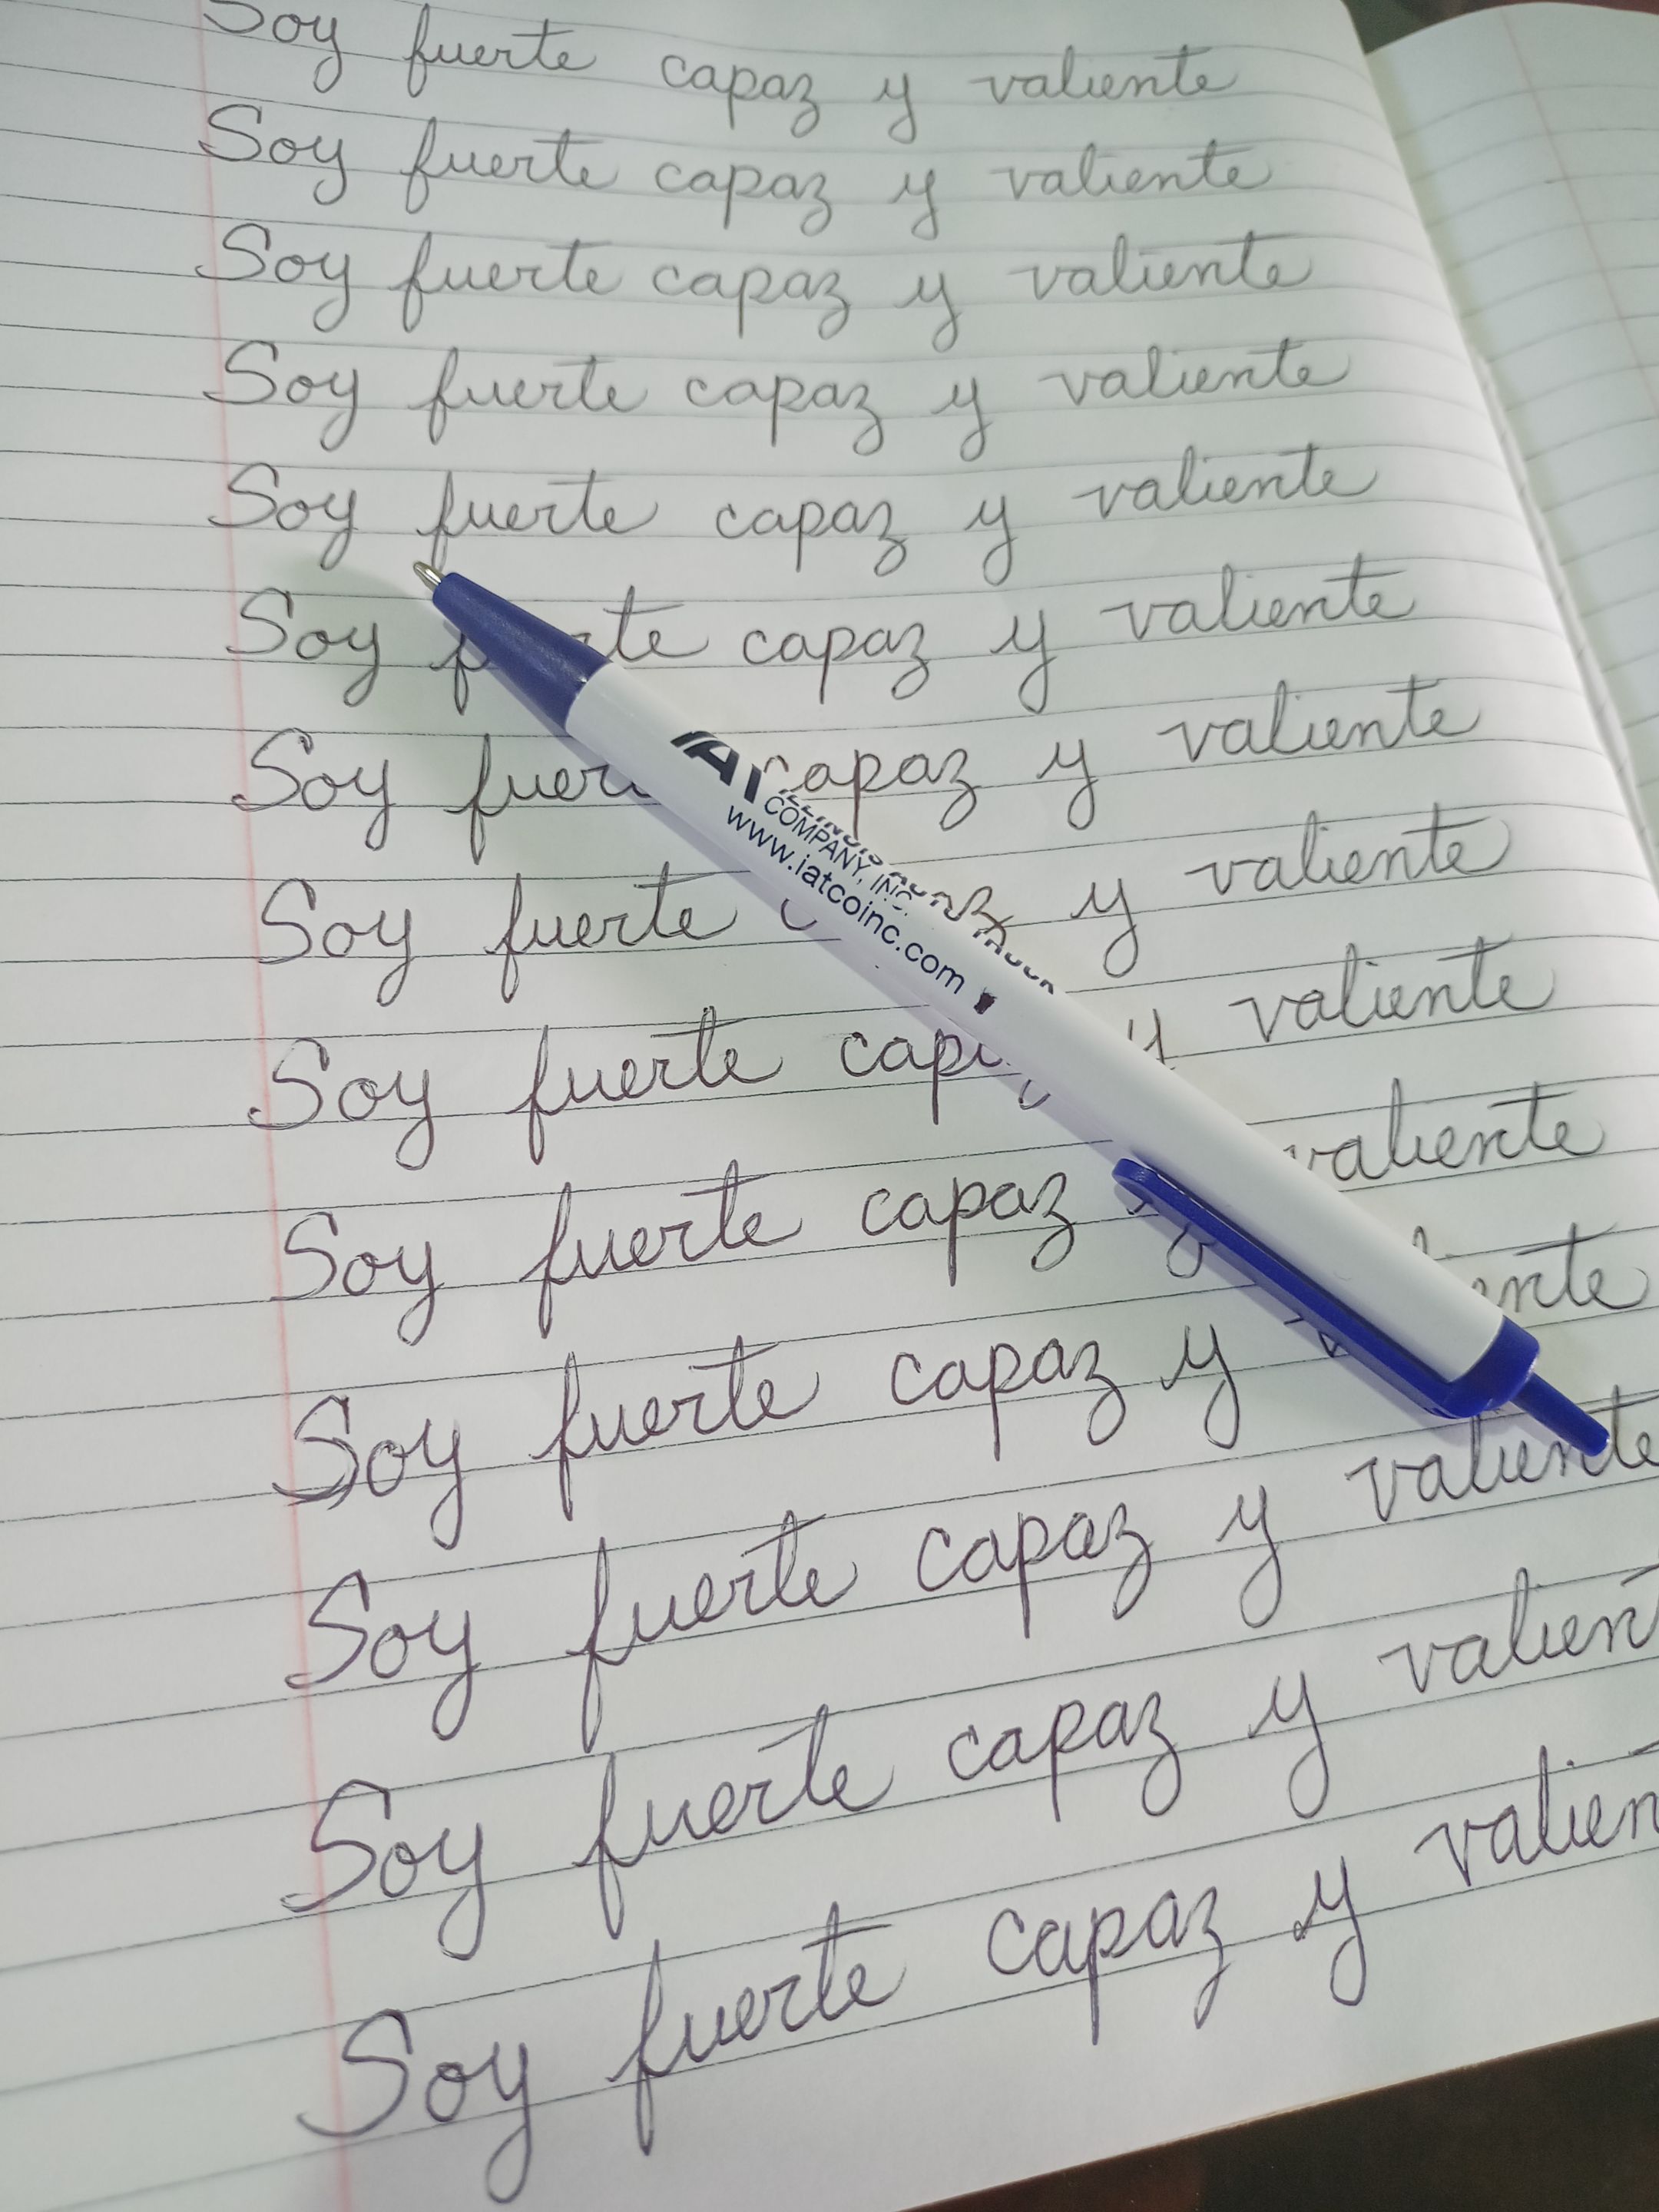 Soy fuerte capaz y valiente
Soy fuerte capaz y valiente
Soy fuerte capaz y valiente
Soy fuerte capaz y valiente
Soy fuerte capaz y valiente
Soy capaz y valiente
Soy capaz y valiente
Soy fuerte y valiente
Soy fuerte y valiente
Soy fuerte capaz valiente
Soy fuerte capaz y
Soy fuerte capaz y valiente
Soy fuerte capaz y valient
Soy fuerte capaz y valien
COMPANY, INC.
www.iatcoinc.com